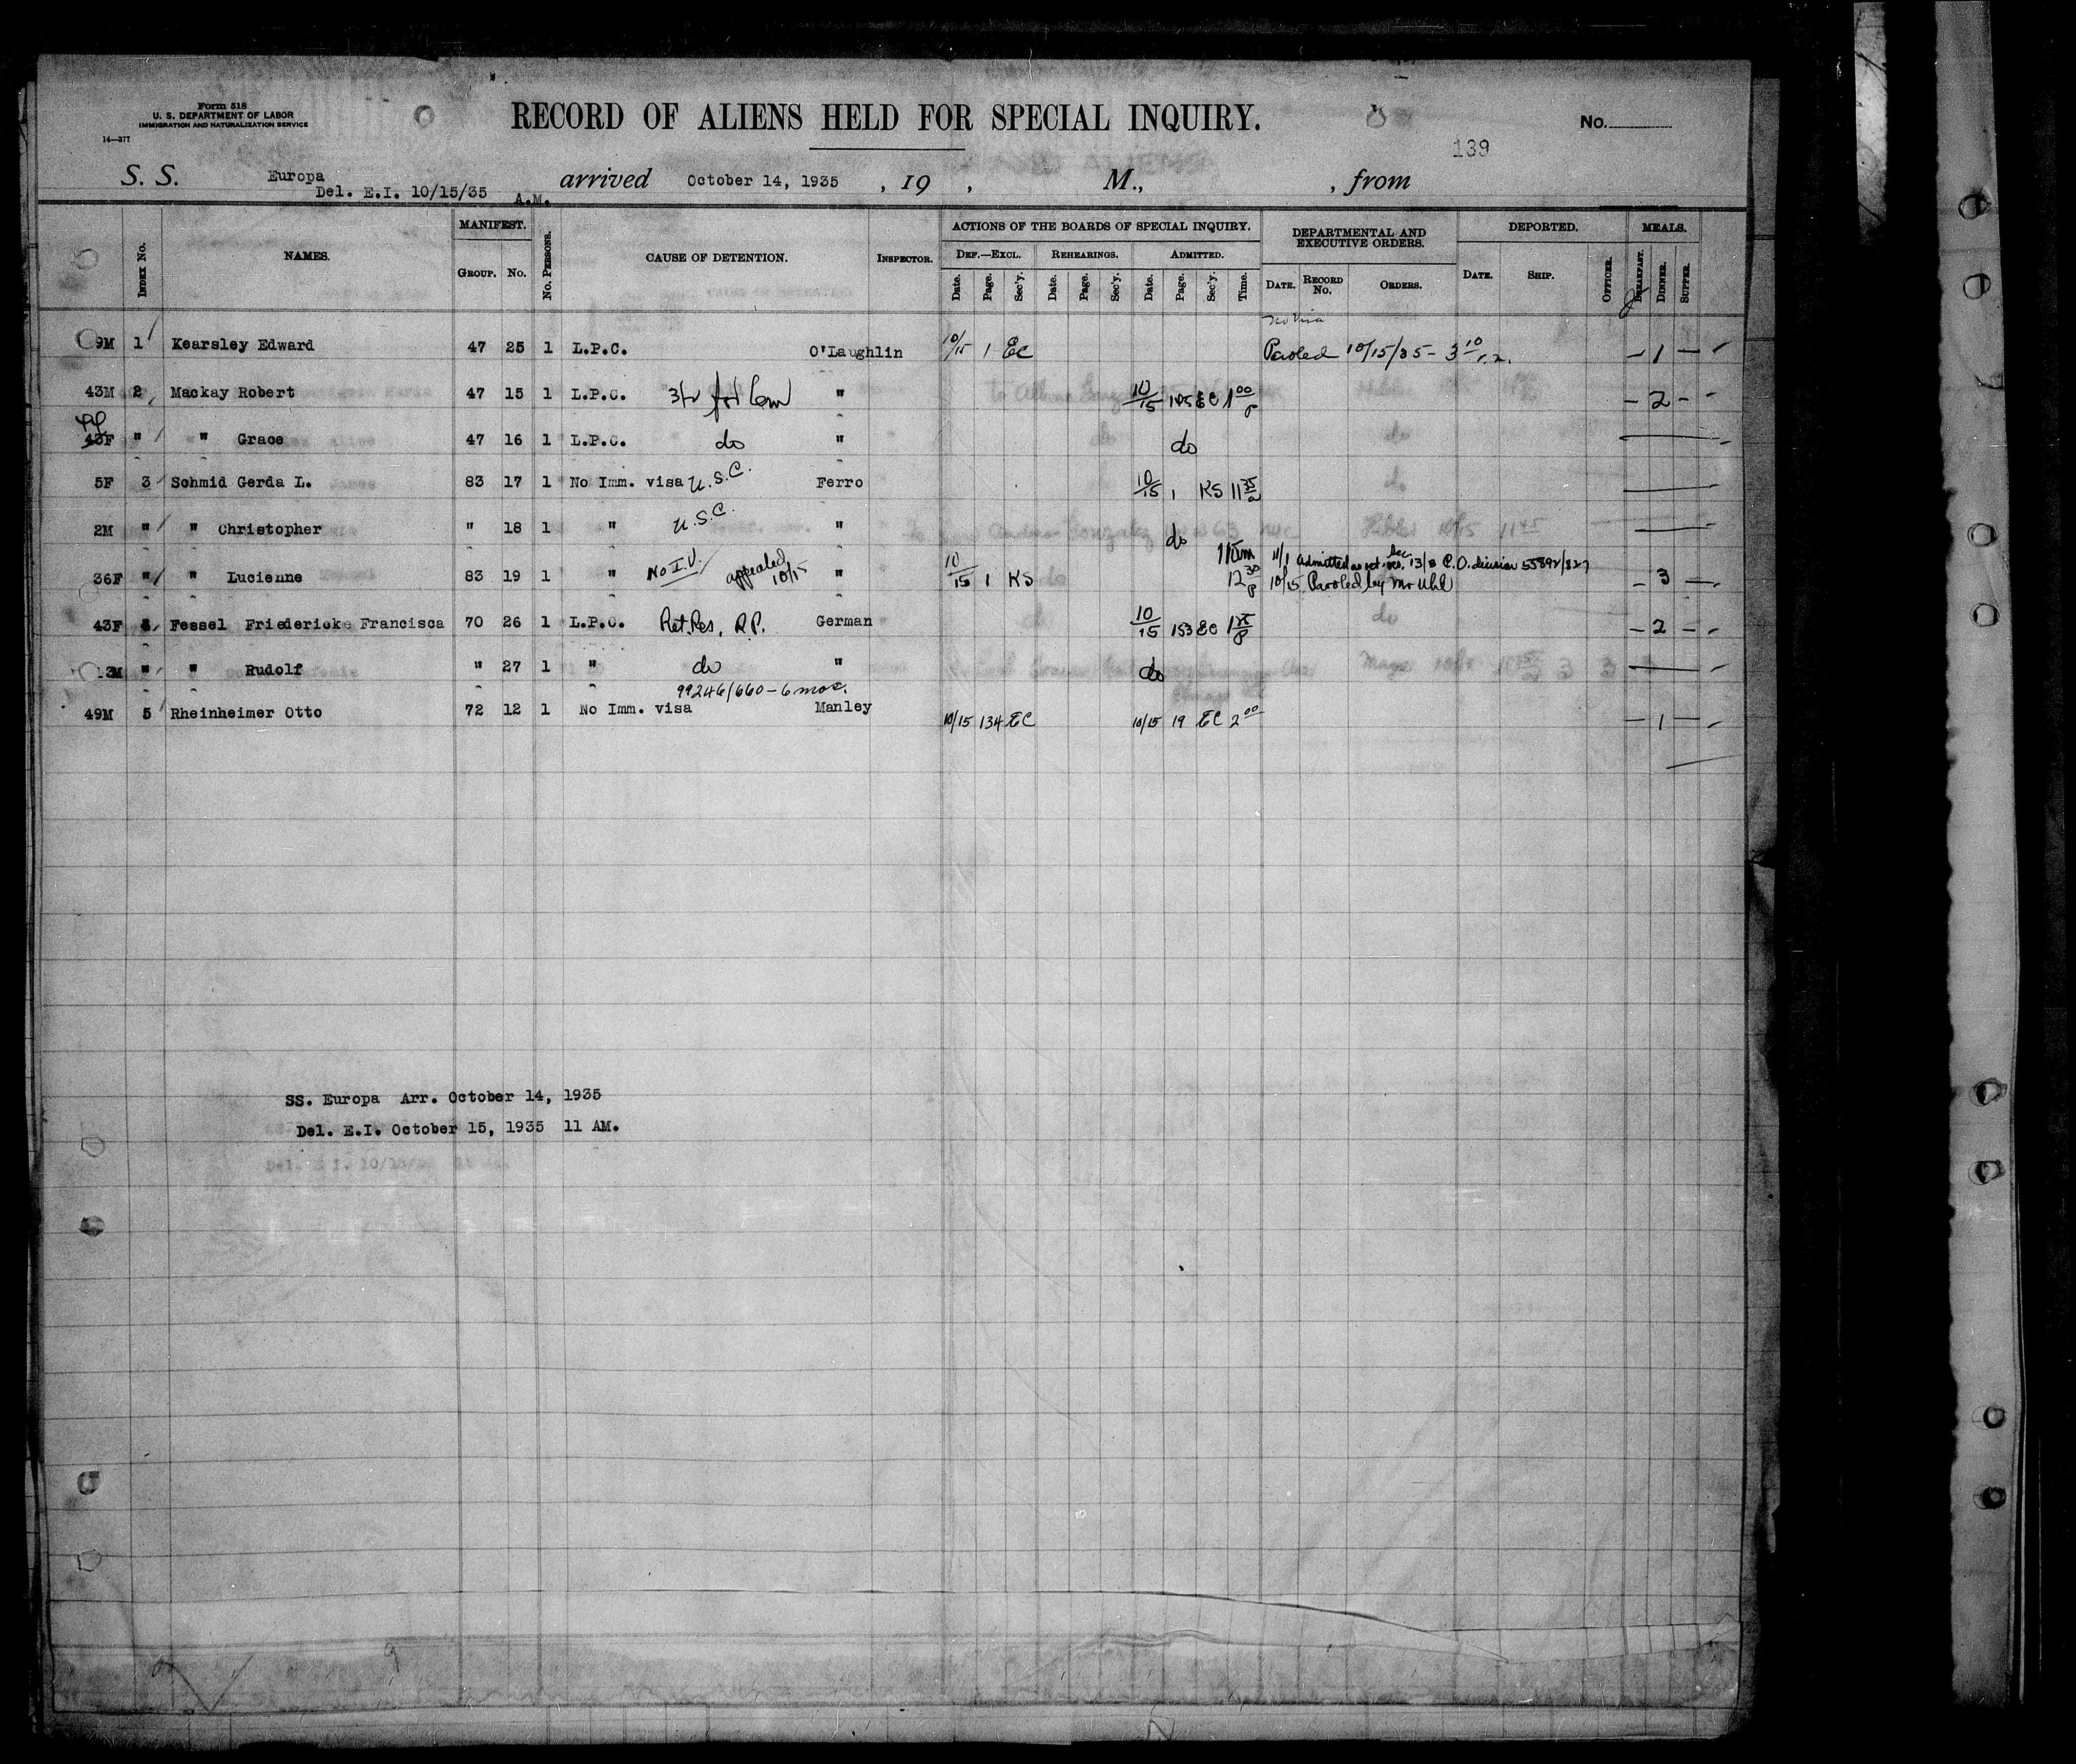 Form 518
U. S. DEPARTMENT OF LABOR
IMMIGRATION AND NATURALIZATION SERVICE
14—377
RECORD OF ALIENS HELD FOR SPECIAL INQUIRY.
No.
139
S. S. Europa arrived October 14, 1935 , 19 , M., , from
Del. E.I. 10/15/35 A.M.
INDEX No. NAMES. MANIFEST. GROUP. No. No. PERSONS. CAUSE OF DETENTION. INSPECTOR. ACTIONS OF THE BOARDS OF SPECIAL INQUIRY. DEF.—EXCL. Date. Page. Sec'y. REHEARINGS. Date. Page. Sec'y. ADMITTED. Date. Page. Sec'y. Time. DEPARTMENTAL AND EXECUTIVE ORDERS. DATE. RECORD No. ORDERS. DEPORTED. DATE. SHIP. OFFICER. MEALS. BREAKFAST. DINNER. SUPPER.
9M 1 Kearsley Edward 47 25 1 L.P.C. O'Laughlin 10/15 1 EC Paroled 10/15/35 - 3 10 — 1 —
43M 2 Mackay Robert 47 15 1 L.P.C. " 10/15 EC 1 00 P — 2 —
44
43F " " Grace 47 16 1 L.P.C. do " do
5F 3 Schmid Gerda L. 83 17 1 No Imm. visa U.S.C. Ferro 10/15 1 KS 11 35 a
2M " " Christopher " 18 1 " U.S.C. " do
11/1 Admitted 13/3 C.O. decision 55892/827
36F " " Lucienne 83 19 1 " No I.V. appealed 10/15 " 10/15 1 KS 12 30 P 10/15 Paroled by Mr Uhl — 3 —
43F Fessel Friedericke Francisca 70 26 1 L.P.C. Ret. Res, R.P. German 10/15 153 EC P — 2 —
13M " " Rudolf " 27 1 " do " do
99246/660 - 6 mos.
49M 5 Rheinheimer Otto 72 12 1 No Imm. visa Manley 10/15 134 EC 10/15 19 EC 2 00 — 1 —
SS. Europa Arr. October 14, 1935
Del. E.I. October 15, 1935 11 AM.